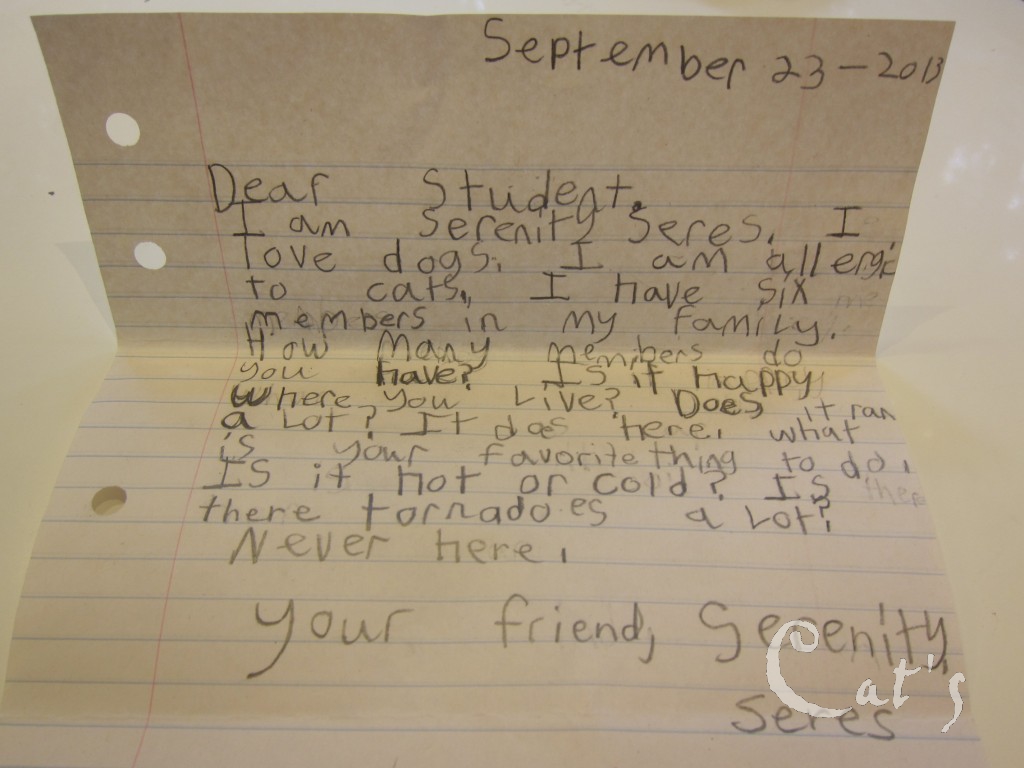 September 23-2013
Dear Student.
I am Serenity Seres. I
love dogs. I am allergic
to cats. I have six
members in my family.
How many members do
you have? Is it happy
where you Live? Does it ran
a Lot? It does here. what
is your favorite thing to do.
IS it hot or cold? IS
there tornadoes a Lot?
Never here.
your friend, Serenity
Seres
Cat's